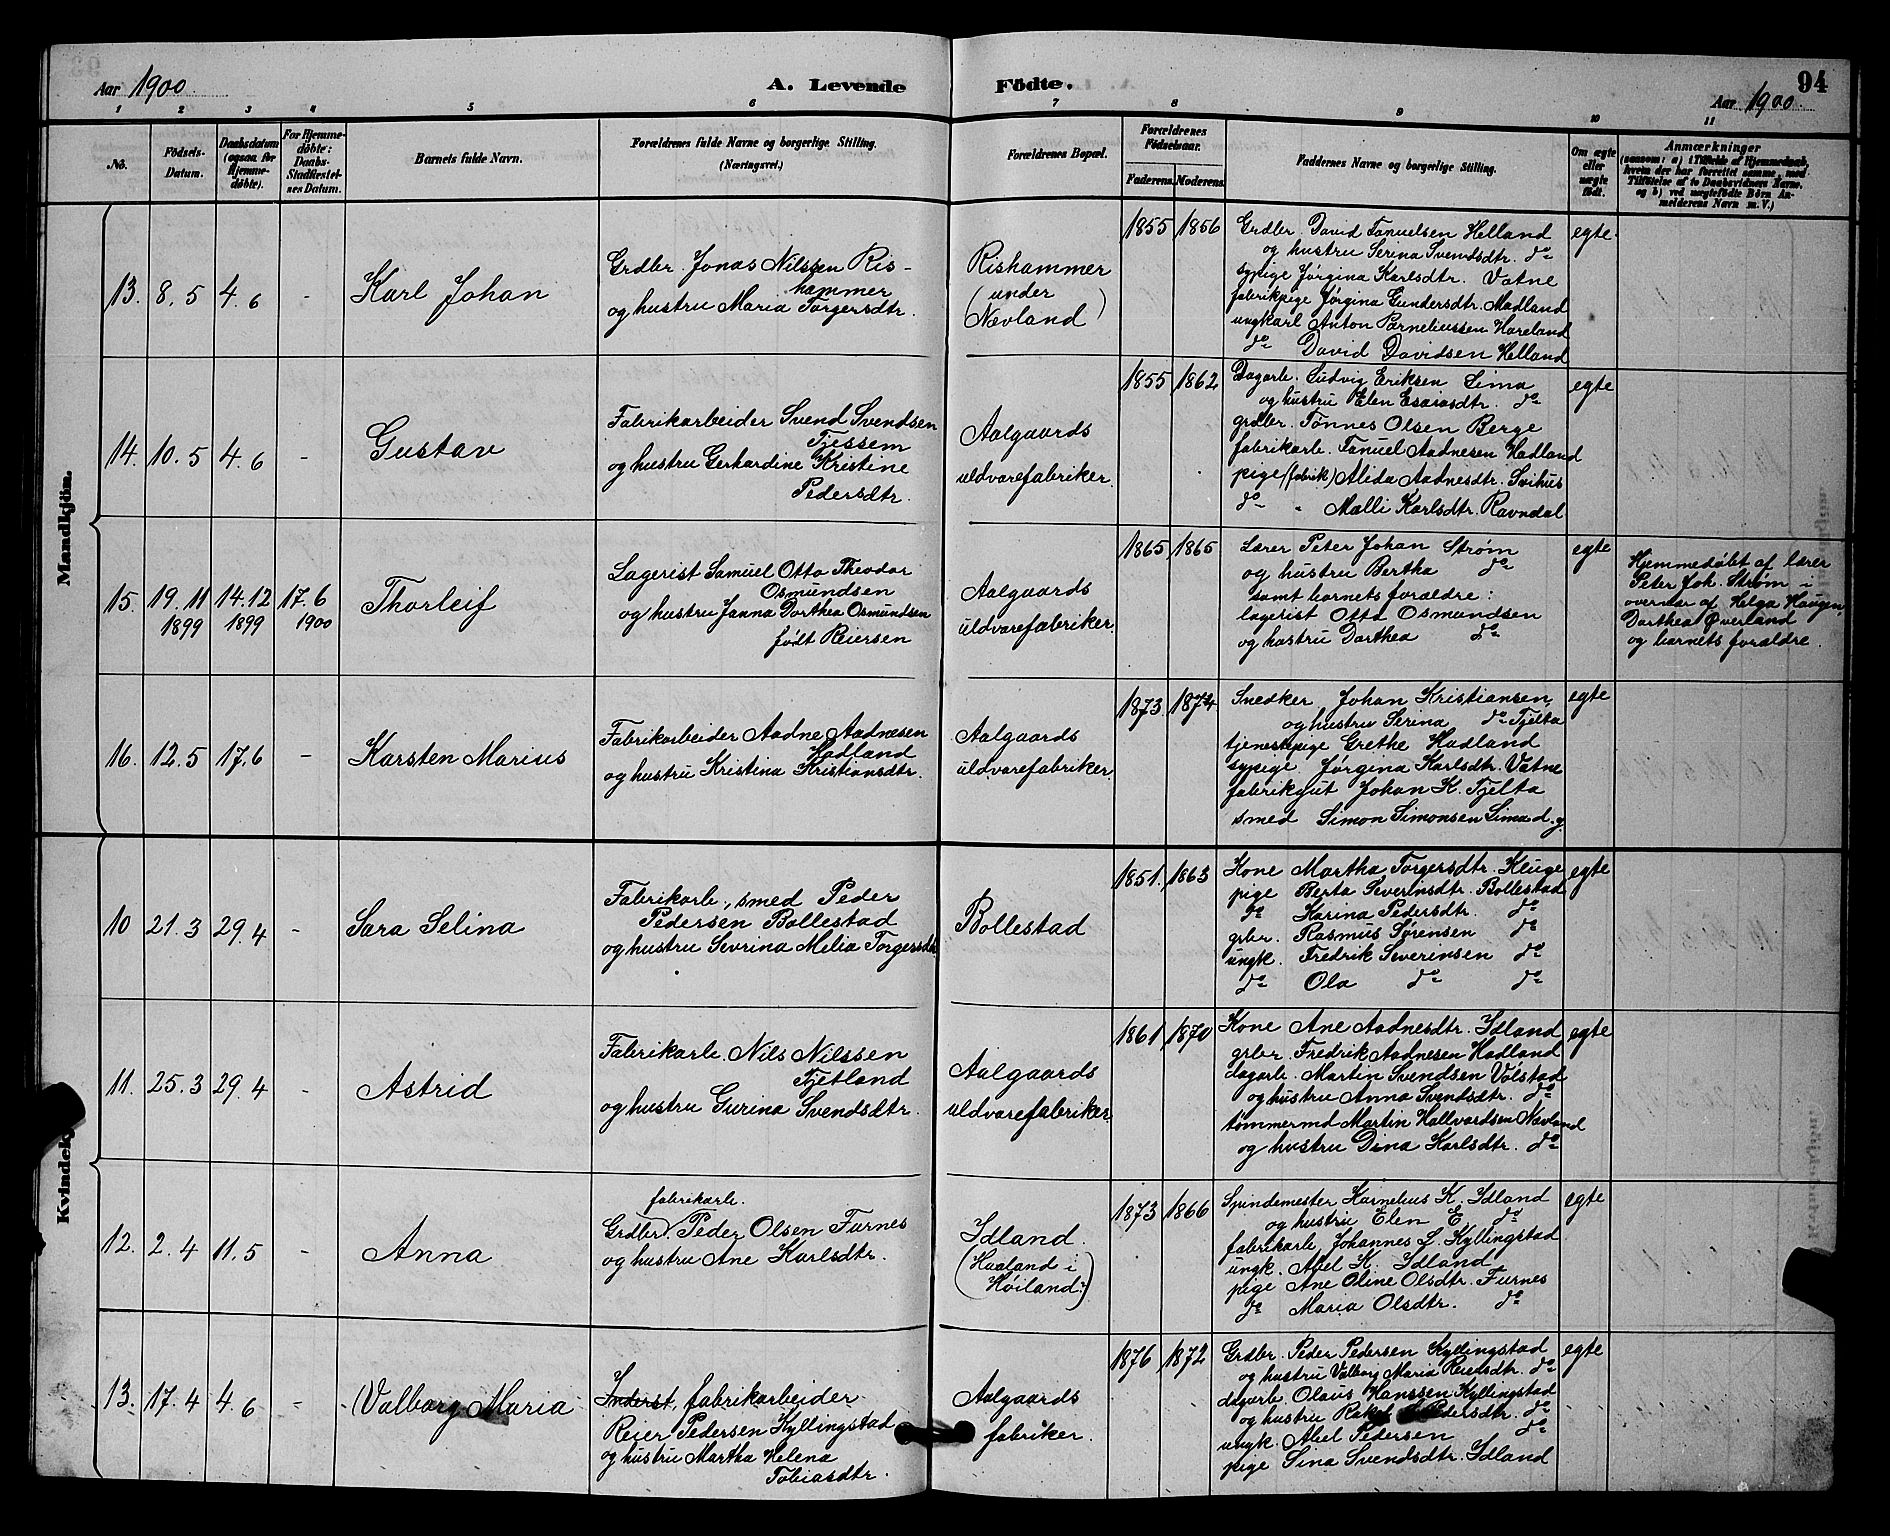 Aar 1900
A. Levende
Fødte.
94
Aar 1900.
1 2 3 4 5 6 7 8 9 10 11
No.
Fødsels-
Datum.
Daabsdatum
(ogsaa for
Hjemme-
døbte).
For Hjemme-
døbte:
Daabs-
Stadfæstel-
ses Datum.
Barnets fulde Navn.
Forældrenes fulde Navne og borgerlige Stilling.
(Næringsvei.)
Forældrenes Bopæl.
Forældrenes
Fødselsaar.
Faderens.
Moderens.
Faddernes Navne og borgerlige Stilling.
Om ægte
eller
uægte
født.
Anmærkninger
(saasom: a) i Tilfælde af Hjemmedaab,
hvem der har forrettet samme, med
Tilføielse af to Daabsvidners Navne,
og b) ved uægtefødte Børn An-
melderens Navn m. V.)
Mandkjøn.
13. 8.5 4.6 -
Karl Johan
Grdbr. Jonas Nilssen Ris-
hammer
og hustru Maria Torgersdtr.
Rishammer
(under
Nævland)
1855 1856
Grdbr. David Tanuelsen Helland
og hustru Serina Svendsdtr. do
sypige Jørgina Karlsdtr. Vatne
fabrikpige Jørgina Gundersdtr. Madland
ungkarl Anton Porneliussen Hareland
do David Davidsen Helland
egte
14. 10.5 4.6 -
Gustav
Fabrikarbeider Svend Svendsen
Tjessem
og hustru Gerhardine Kristine
Pedersdtr.
Aalgaards
uldvarefabriker.
1855 1862
Dagarb. Ludvig Eriksen Lima
og hustru Elen Esaiasdtr. do
grdbr. Tønnes Olsen Berge
fabrikarb. Tanuel Aadnesen Hadland
pige (fabrik) Alida Aadnesdtr. Svihus
do " Malli Karlsdtr. Ravndal
egte
15. 19.11 14.12 17.6
1899 1899 1900
Thorleif
Lagerist Samuel Otto Theodor
Osmundsen
og hustru Janna Dorthea Osmundsen
født Reiersen
Aalgaards
uldvarefabriker.
1865 1865
Lærer Peter Johan Strøm
og hustru Bertha do
samt barnets forældre:
lagerist Otto Osmundsen
og hustru Dorthea do
egte
Hjemmedøbt af lærer
Peter Joh. Strøm i
overvær af Helga Haugen,
Dorthea Øverland
og barnets forældre.
16. 12.5 17.6 -
Karsten Marius
Fabrikarbeider Aadne Aadnesen
Hadland
og hustru Kristina Kristiansdtr.
Aalgaards
uldvarefabriker.
1873 1874
Snedker Johan Kristiansen
og hustru Serina do Tjelta
tjenestpige Grethe Hadland
sypige Jørgina Karlsdtr. Vatne
fabrikgut Johan K. Tjelta
smed Simon Simonsen Lima d.y.
egte
Kvindek
10 21.3 29.4 -
Sara Selina
Fabrikarb., smed Peder
Pedersen Bollestad
og hustru Sevrina Melia Torgersdtr
Bollestad
1851. 1863
Kone Martha Torgersdtr. Kluge
pige Berta Severinsdtr. Bollestad
do Karina Pedersdtr. do
grbr. Rasmus Sørensen do
ungk. Fredrik Severinsen do
do Ola do do
egte
11. 25.3 29.4 -
Astrid
Fabrikarb. Nils Nilssen
Tjetland
og hustru Gurina Svendsdtr.
Aalgaards
uldvarefabriker.
1861 1870
Kone Ane Aadnesdtr. Idland
grbr. Fredrik Aadnesen Hadland
dagarb. Martin Svendsen Volstad
og hustru Anna Svendsdtr. do
tømmermd Martin Hallvardsen Nævland
og hustru Dina Karlsdtr. do
egte
12. 2.4 11.5 -
Anna
fabrikarb.
Grdbr. Peder Olsen Furnes
og hustru Ane Karlsdtr.
Idland.
(Haaland i
Høiland.)
1873 1866
Spindemester Kornelius K. Idland
og hustru Elen E do
fabrikarb. Johannes L. Kyllingstad
ungk. Abel K. Idland
pige Ane Oline Olsdtr. Furnes
do Maria Olsdtr. do
egte
13. 17.4 4.6 -
Valborg Maria
Inderst, fabrikarbeider
Reier Pedersen Kyllingstad
og hustru Martha Helena
Tobiasdtr.
Aalgaards
fabriker.
1876 1872
Grdbr. Peder Pedersen Kyllingstad
og hustru Valborg Maria Reiersdtr. do
dagarb. Olaus Hanssen Kyllingstad
og hustru Rakel Pedersdtr. do
ungk. Abel Pedersen do
pige Sina Svendsdtr. Idland
egte